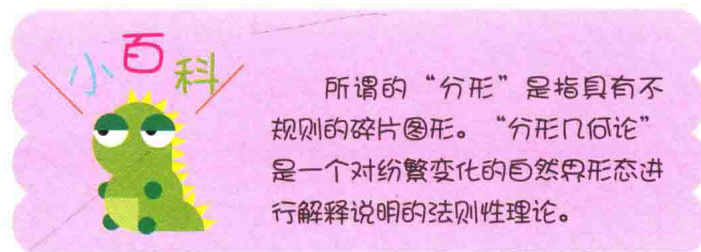 小百科
所谓的“分形”是指具有不
规则的碎片图形。“分形几何论”
是一个对纷繁变化的自然界形态进
行解释说明的法则性理论。